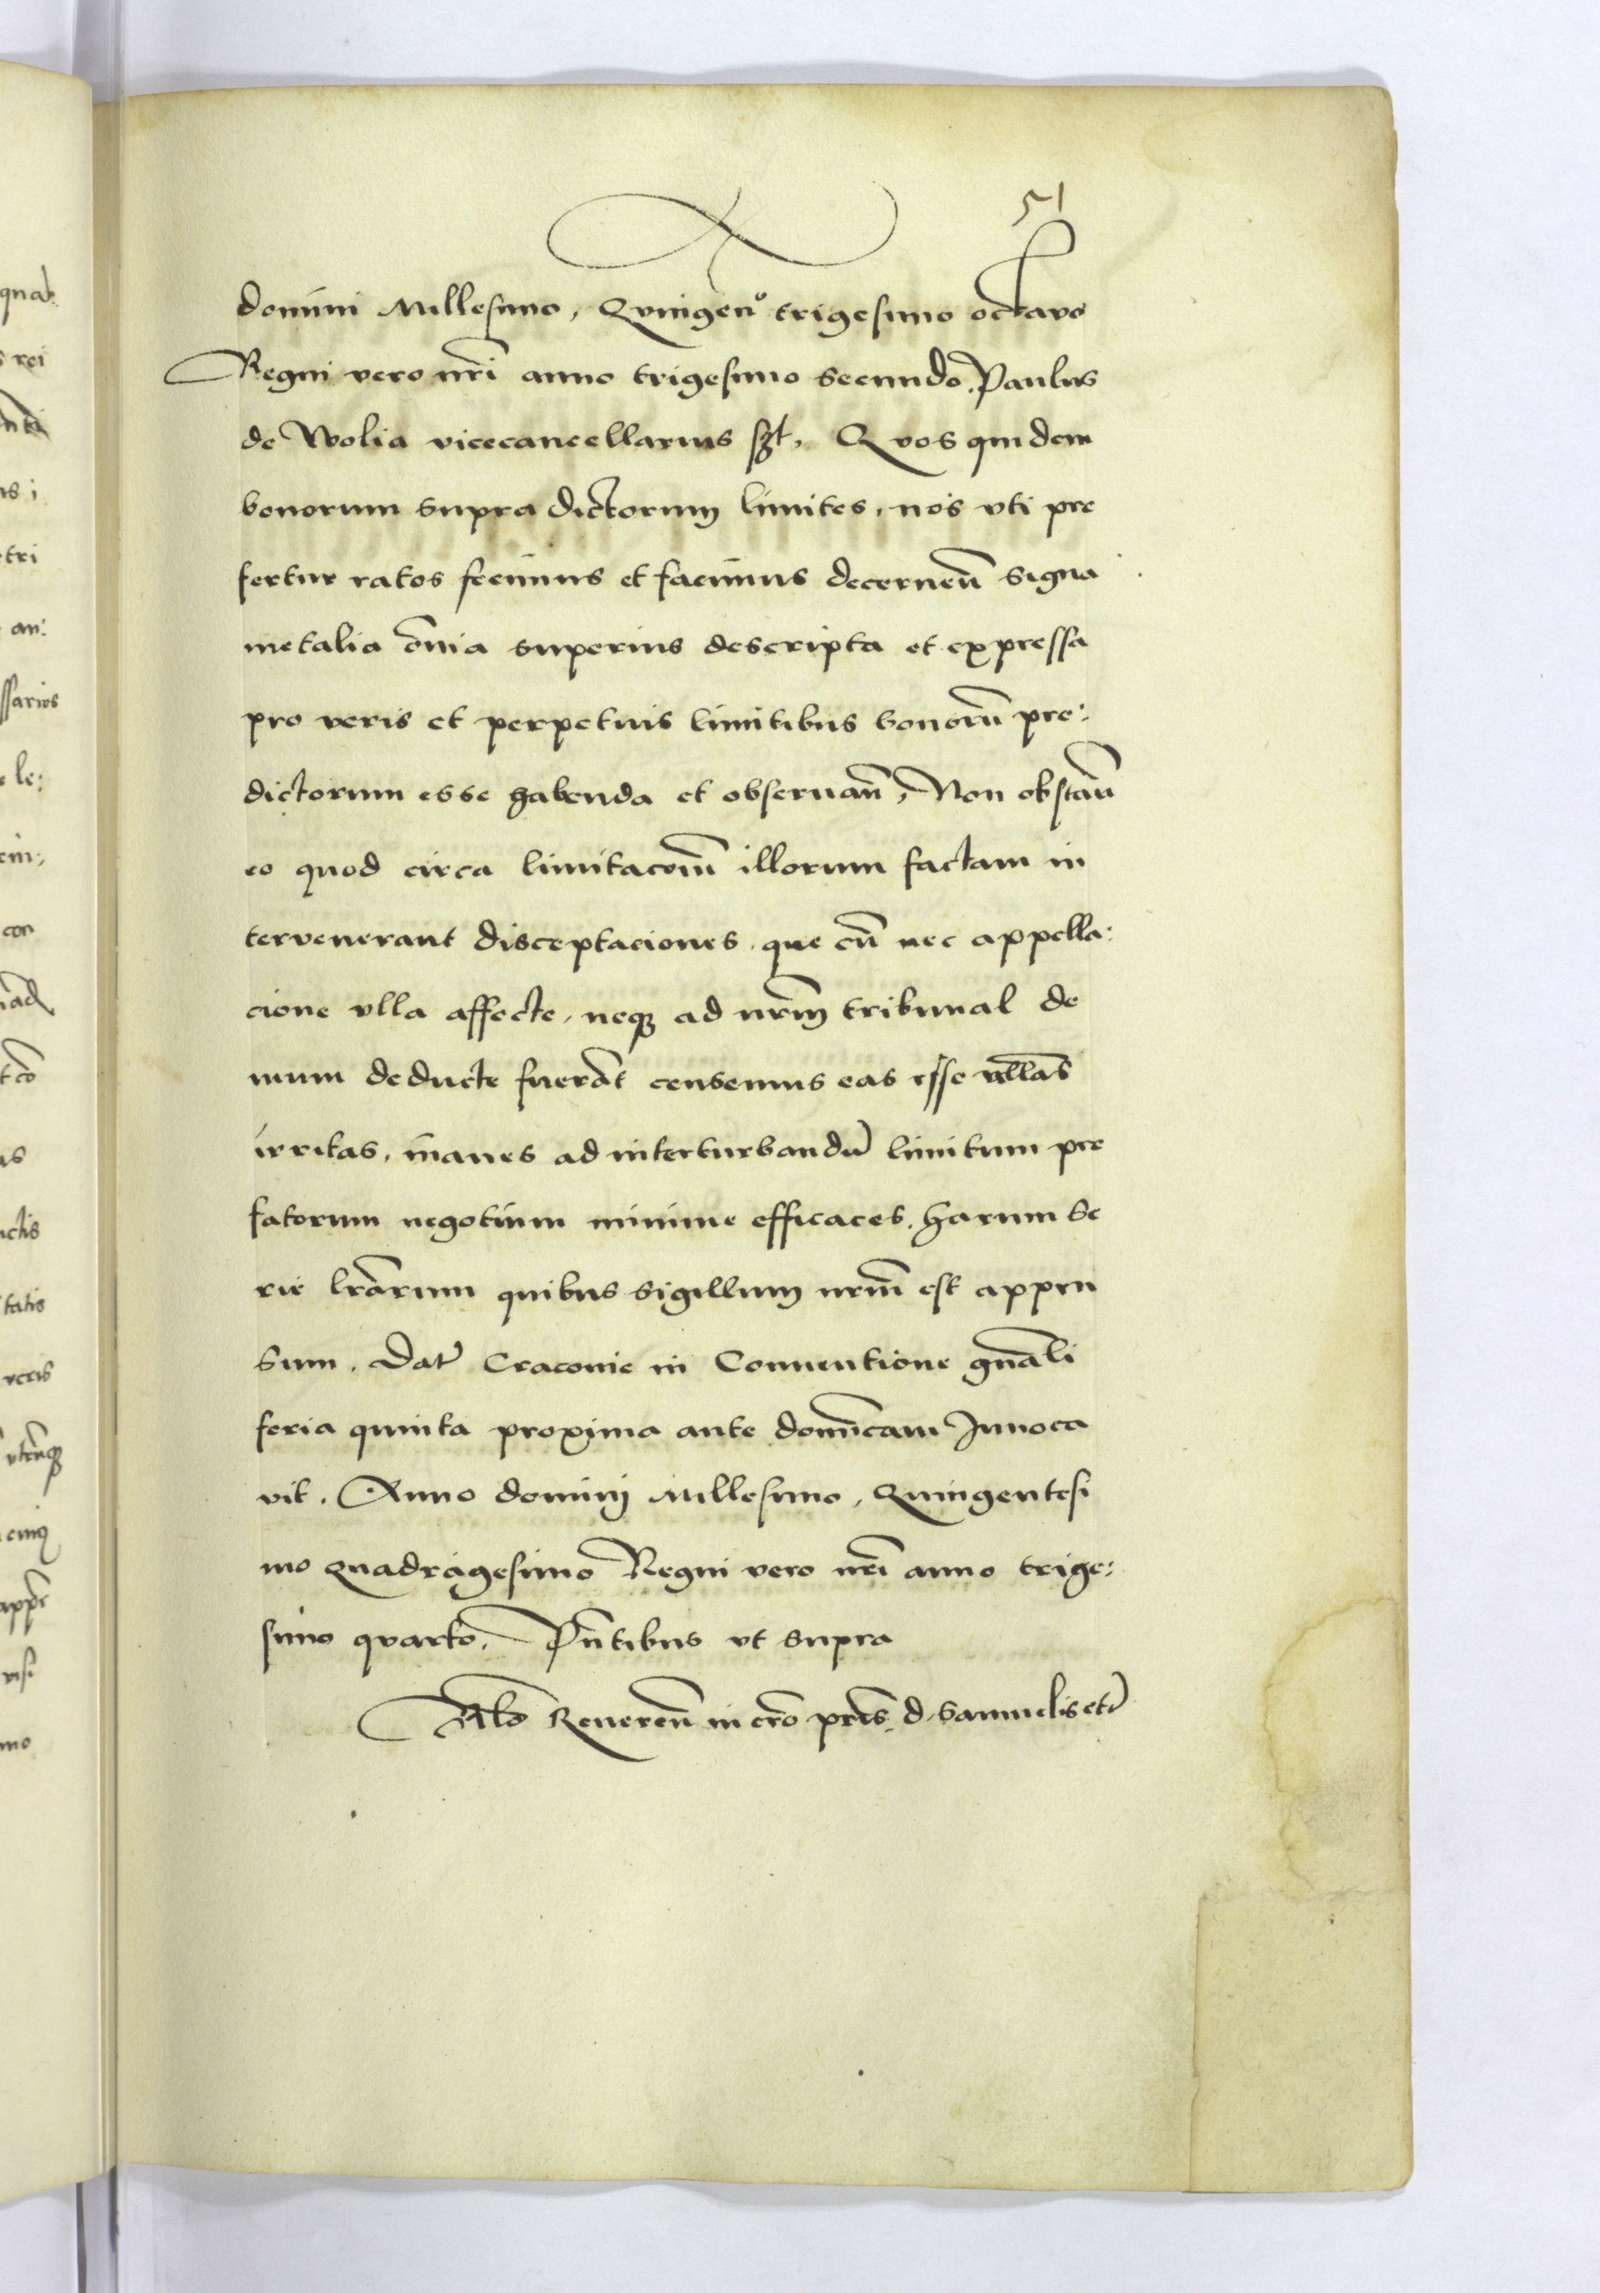 51
domini Millesimo, Qvingenᵒ trigesimo octavo
Regni vero nr̄i anno trigesimo secundo. Paulus
de Wolia vicecancellarius sz̄t, Qvos quidem
bonorum supra dictorum limites, nos vti pre
fertur ratos fecimus et facimus decerneñ signa
metalia om̄ia superius descripta et expressa
pro veris et perpetuis limitibus bonorū pre:
dictorum esse habenda et obseruan̄, Non obstan̄
eo quod circa limitacōm̄ illorum factam in
tervenerant disceptaciones, que cū nec appella:
cione vlla affecte, neqʒ ad nr̄m tribunal de
mum deducte fuerāt censemus eas esse nullas
irritas, inanes ad interturbandū limitum pre
fatorum negotium minime efficaces, harum se
rie lr̄arum quibus sigillum nr̄m est appen
sum. Dat̄ Cracovie in Conuentione gn̄ali
feria quinta proxima ante domīcam Inuoca
vit. Anno dominij Millesimo, Quingentesi
mo quadragesimo Regni vero nr̄i anno trige:
simo qvarto, Pn̄tibus vt supra
Rl̄o Reueren̄ in cr̄o pr̄is d. Samuelis etc̄